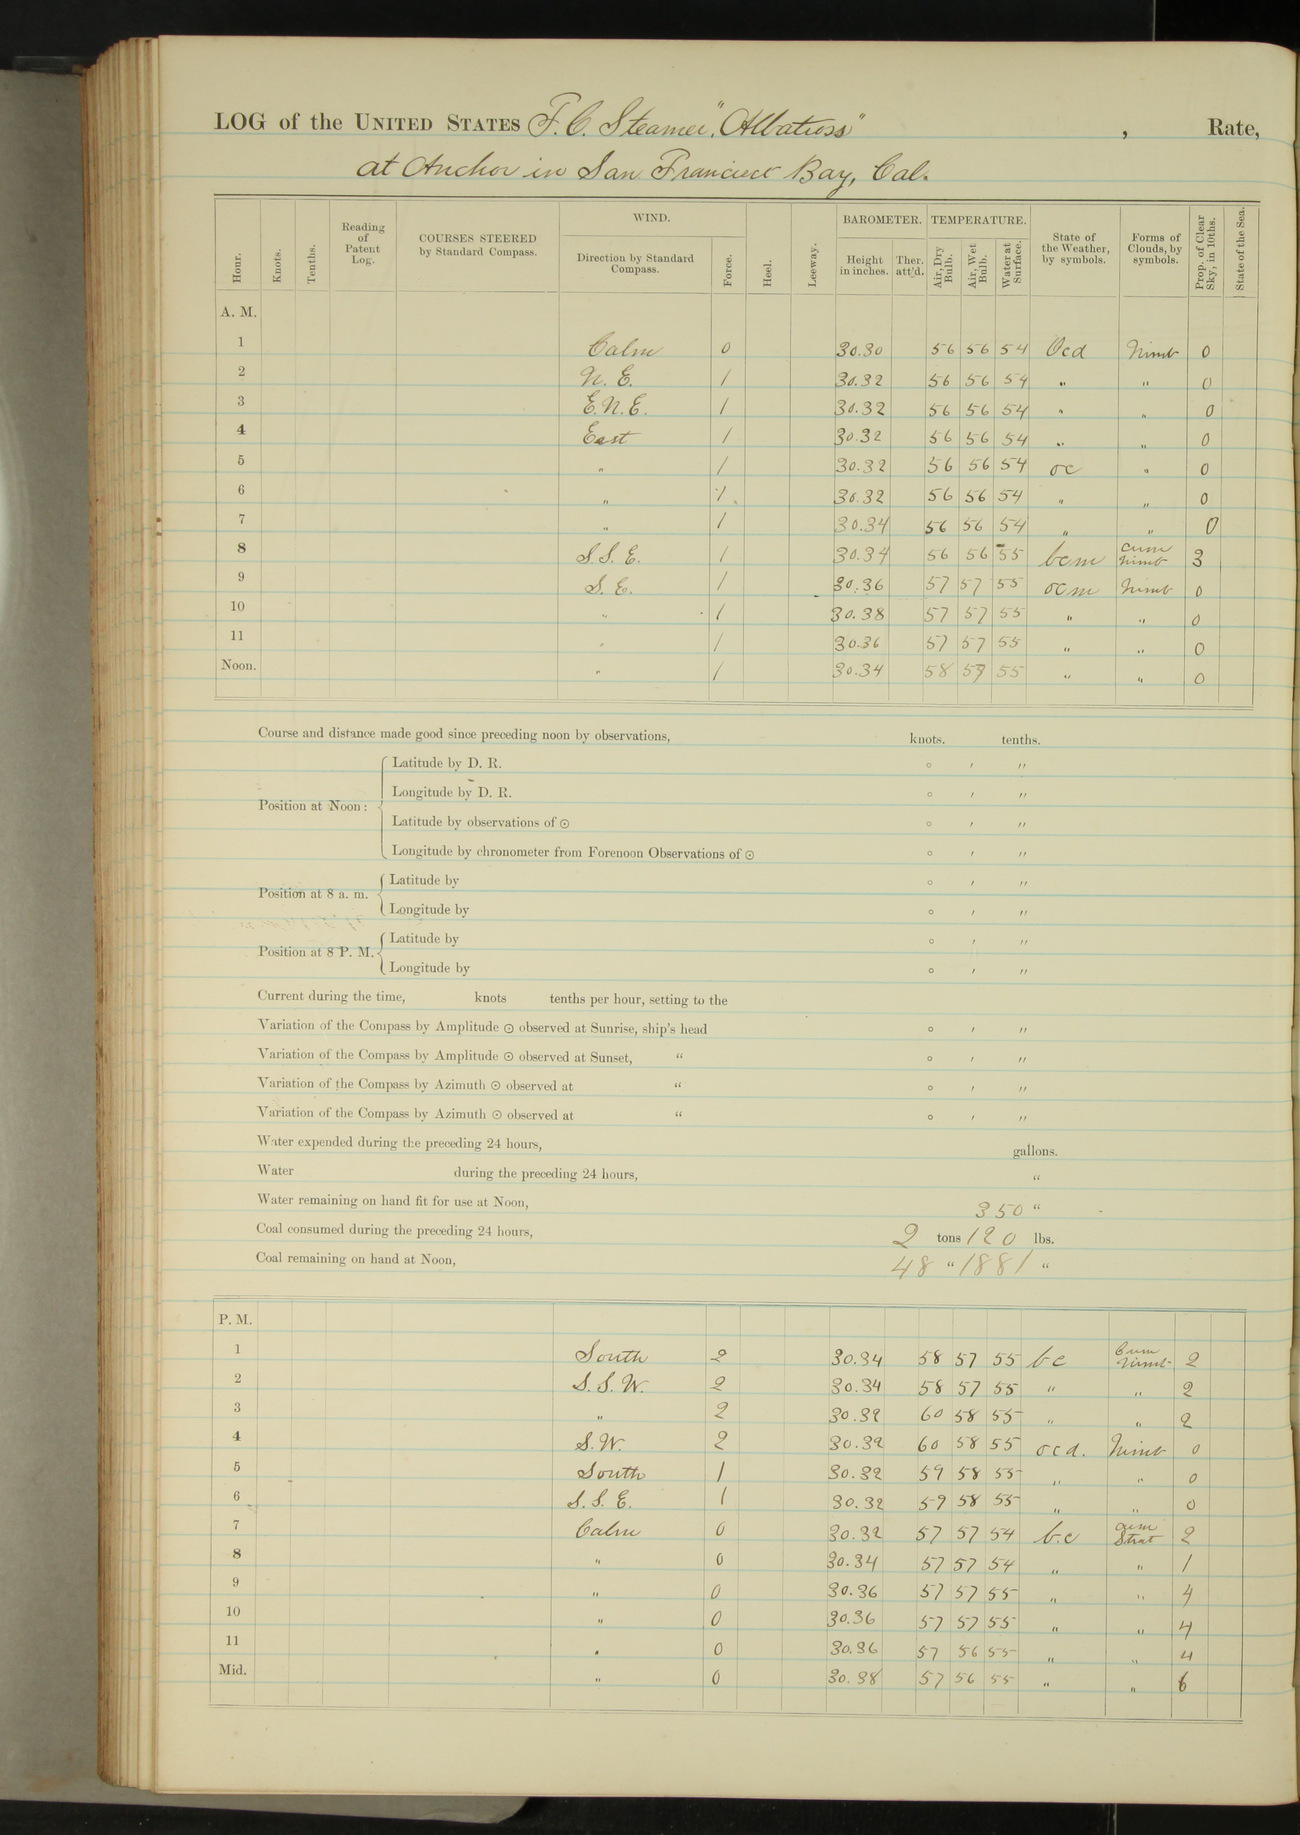 LOG of the UNITED STATES F. C. Steamer "Albatross" , Rate,
at Anchor in San Francisco Bay, Cal.
Hour. Knots. Tenths. Reading of Patent Log. COURSES STEERED by Standard Compass. WIND. Direction by Standard Compass. Force. Heel. Leeway. BAROMETER. Height in inches. Ther. att'd. TEMPERATURE. Air, Dry Bulb. Air, Wet Bulb. Water at Surface. State of the Weather, by symbols. Forms of Clouds, by symbols. Prop. of Clear Sky, in 10ths. State of the Sea.
A. M.
1 Calm 0 30.30 56 56 54 Ocd Nimb 0
2 N. E. 1 30.32 56 56 54 " " 0
3 E.N.E. 1 30.32 56 56 54 " " 0
4 East 1 30.32 56 56 54 " " 0
5 " 1 30.32 56 56 54 oc " 0
6 " 1 30.32 56 56 54 " " 0
7 " 1 30.34 56 56 54 " " 0
8 S.S.E. 1 30.34 56 56 55 bcm cum nimb 3
9 S.E. 1 30.36 57 57 55 ocm Nimb 0
10 " 1 30.38 57 57 55 " " 0
11 " 1 30.36 57 57 55 " " 0
Noon. " 1 30.34 58 57 55 " " 0
Course and distance made good since preceding noon by observations, knots. tenths.
Latitude by D. R. ° ′ ″
Longitude by D. R. ° ′ ″
Position at Noon:
Latitude by observations of ⊙ ° ′ ″
Longitude by chronometer from Forenoon Observations of ⊙ ° ′ ″
Latitude by ° ′ ″
Position at 8 a. m.
Longitude by ° ′ ″
Latitude by ° ′ ″
Position at 8 P. M.
Longitude by ° ′ ″
Current during the time, knots tenths per hour, setting to the
Variation of the Compass by Amplitude ⊙ observed at Sunrise, ship's head ° ′ ″
Variation of the Compass by Amplitude ⊙ observed at Sunset, " ° ′ ″
Variation of the Compass by Azimuth ⊙ observed at " ° ′ ″
Variation of the Compass by Azimuth ⊙ observed at " ° ′ ″
Water expended during the preceding 24 hours, gallons.
Water during the preceding 24 hours, "
Water remaining on hand fit for use at Noon, 350 "
Coal consumed during the preceding 24 hours, 2 tons 120 lbs.
Coal remaining on hand at Noon, 48 " 1881 "
P. M.
1 South 2 30.34 58 57 55 bc Cum Nimb 2
2 S.S.W. 2 30.34 58 57 55 " " 2
3 " 2 30.32 60 58 55 " " 2
4 S.W. 2 30.32 60 58 55 ocd. Nimb 0
5 South 1 30.32 59 58 55 " " 0
6 S.S.E. 1 30.32 59 58 55 " " 0
7 Calm 0 30.32 57 57 54 b.c cum Strat 2
8 " 0 30.34 57 57 54 " " 1
9 " 0 30.36 57 57 55 " " 4
10 " 0 30.36 57 57 55 " " 4
11 " 0 30.36 57 56 55 " " 4
Mid. " 0 30.38 57 56 55 " " 6